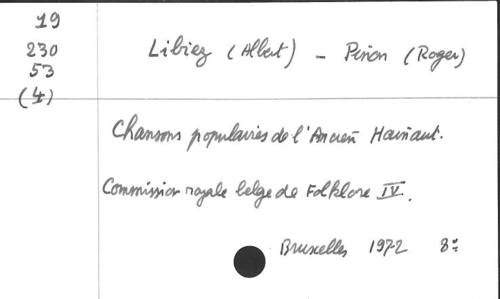 19
230
53
(4)
Libiez (Albert) - Pinon (Roger)
Chansons populaires de l'Ancien Hainaut.
Commission royale belge de Folklore IV.
Bruxelles 1972 8°